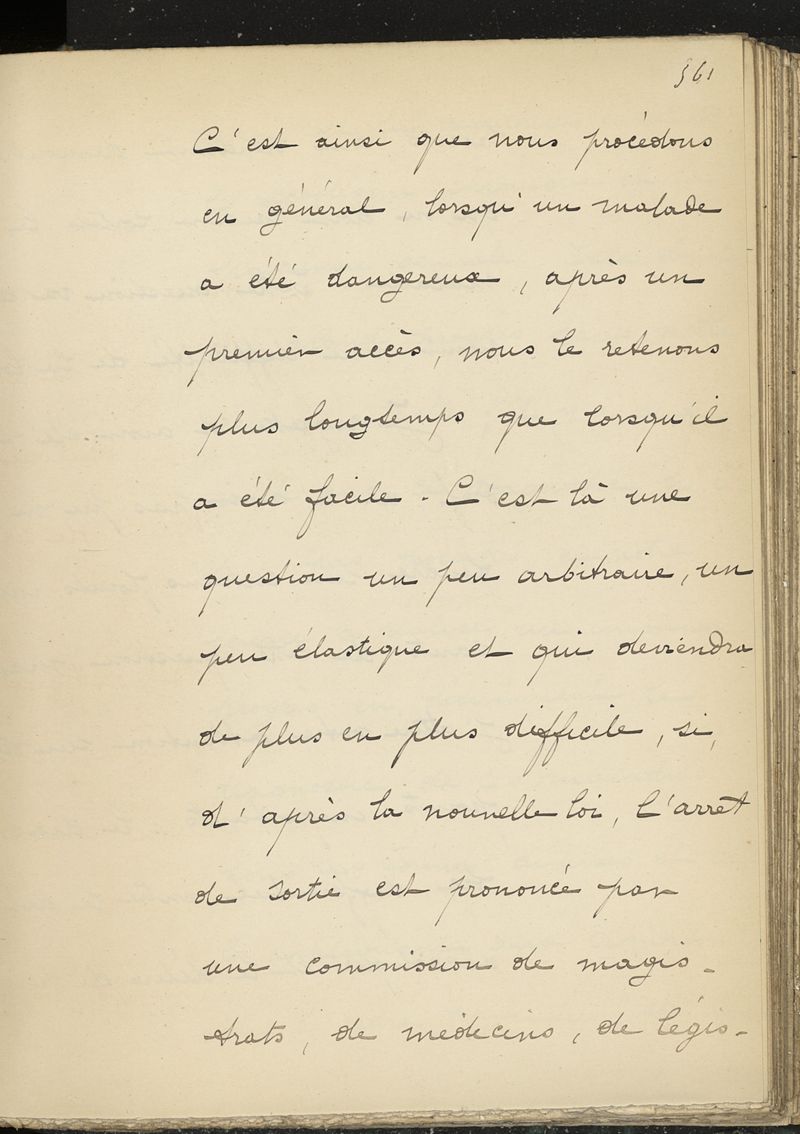 561
C'est ainsi que nous procédons
en général, lorsqu'un malade
a été dangereux, après un
premier accès, nous le retenons
plus longtemps que lorsqu'il
a été facile. C'est là une
question un peu arbitraire, un
peu élastique et qui deviendra
de plus en plus difficile, si,
d'après la nouvelle loi, l'arrêt
de sortie est prononcé par
une commission de magis-
trats, de médecins, de légis-